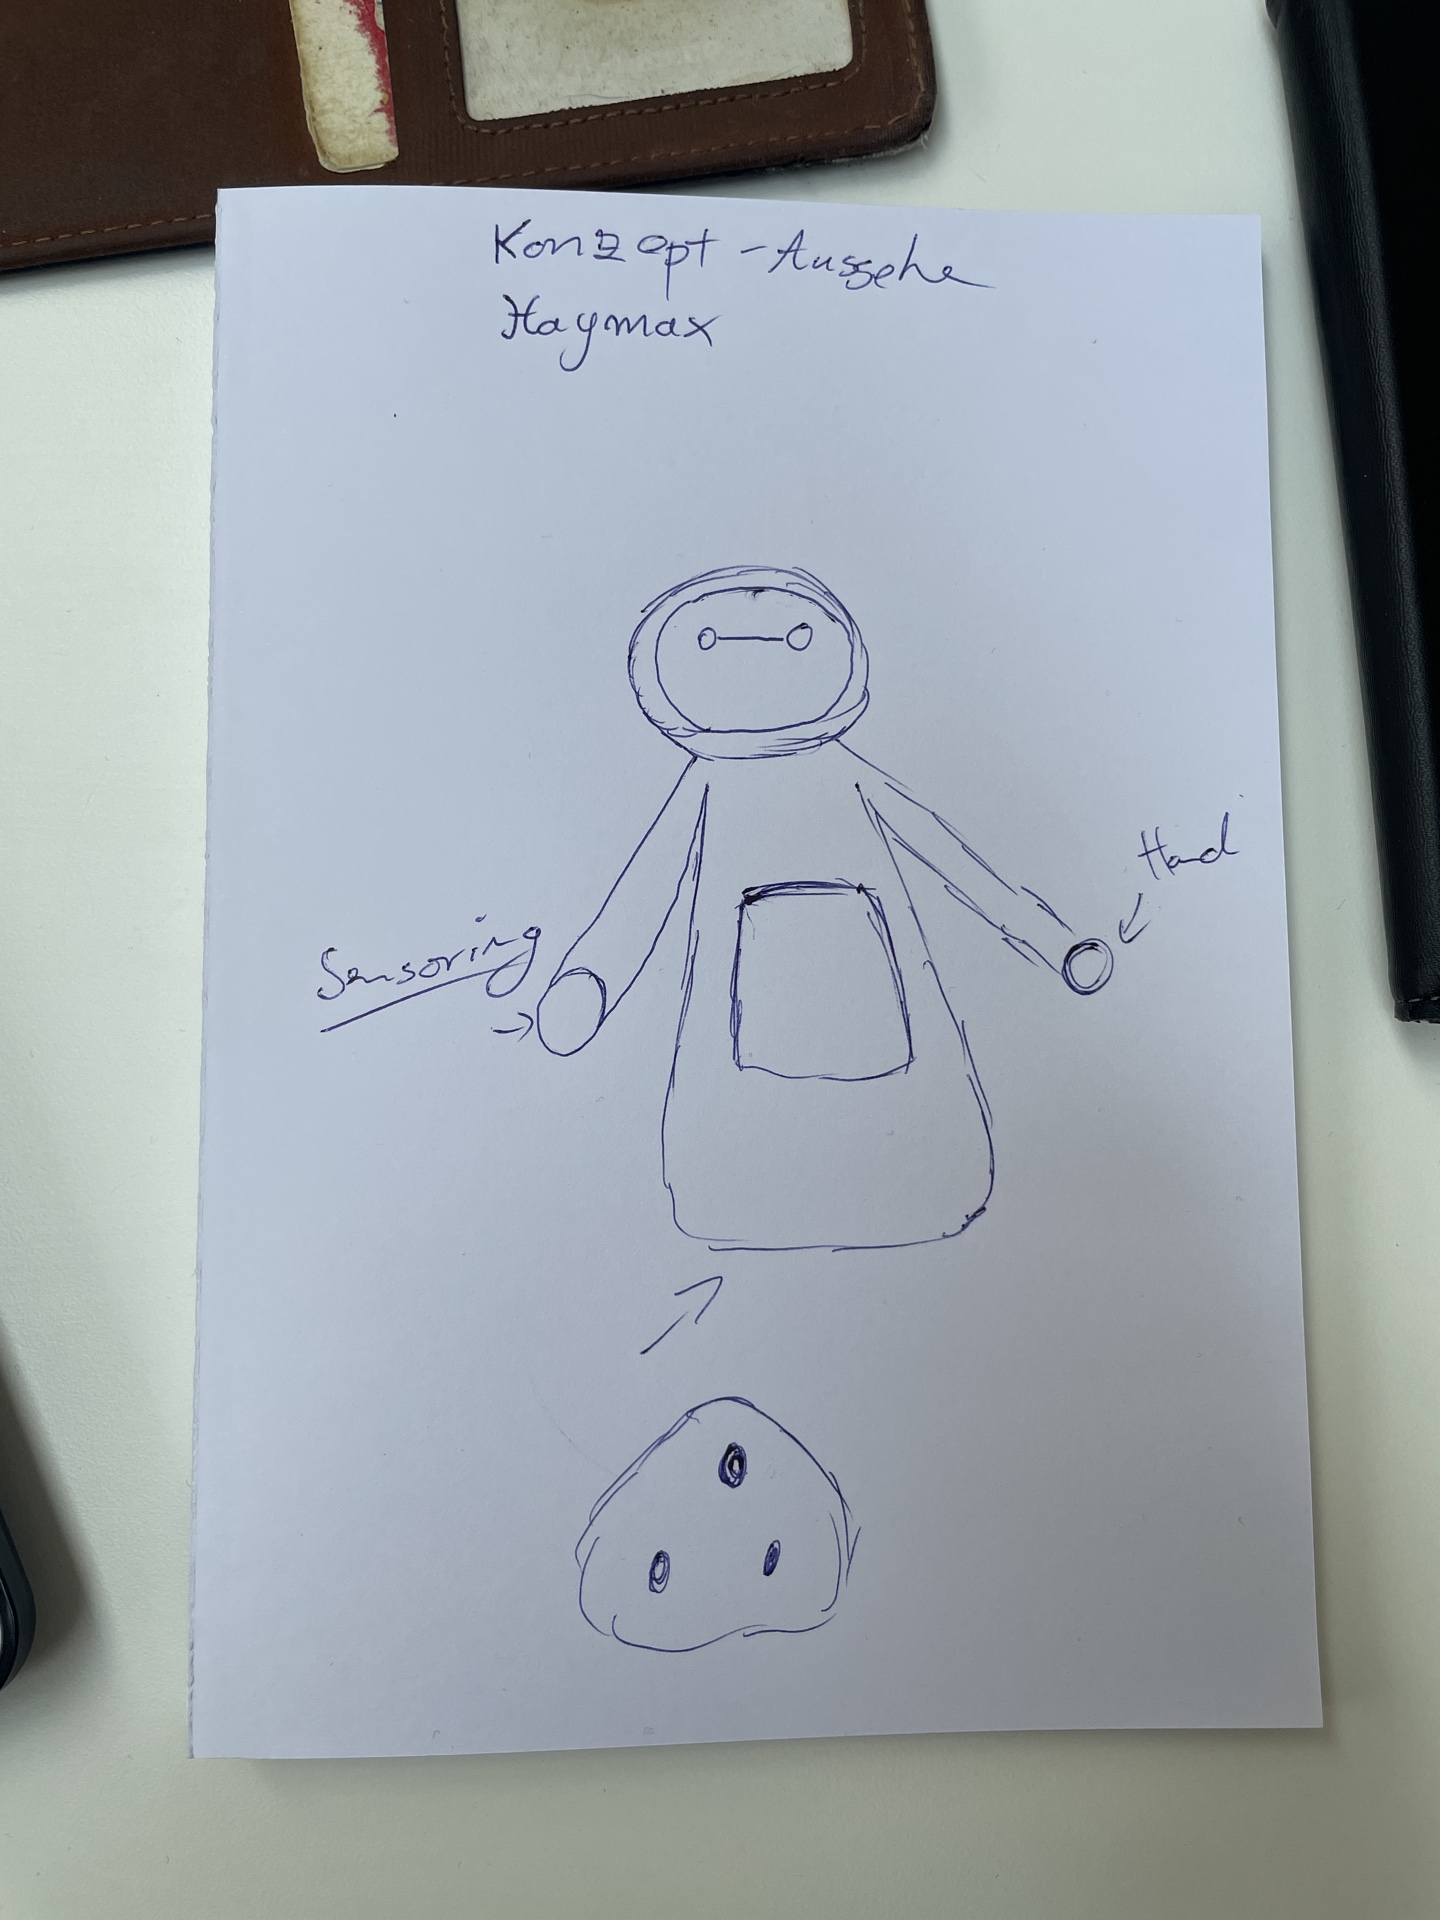 Konzept - Aussehe
Haymax
Hand
Sensoring